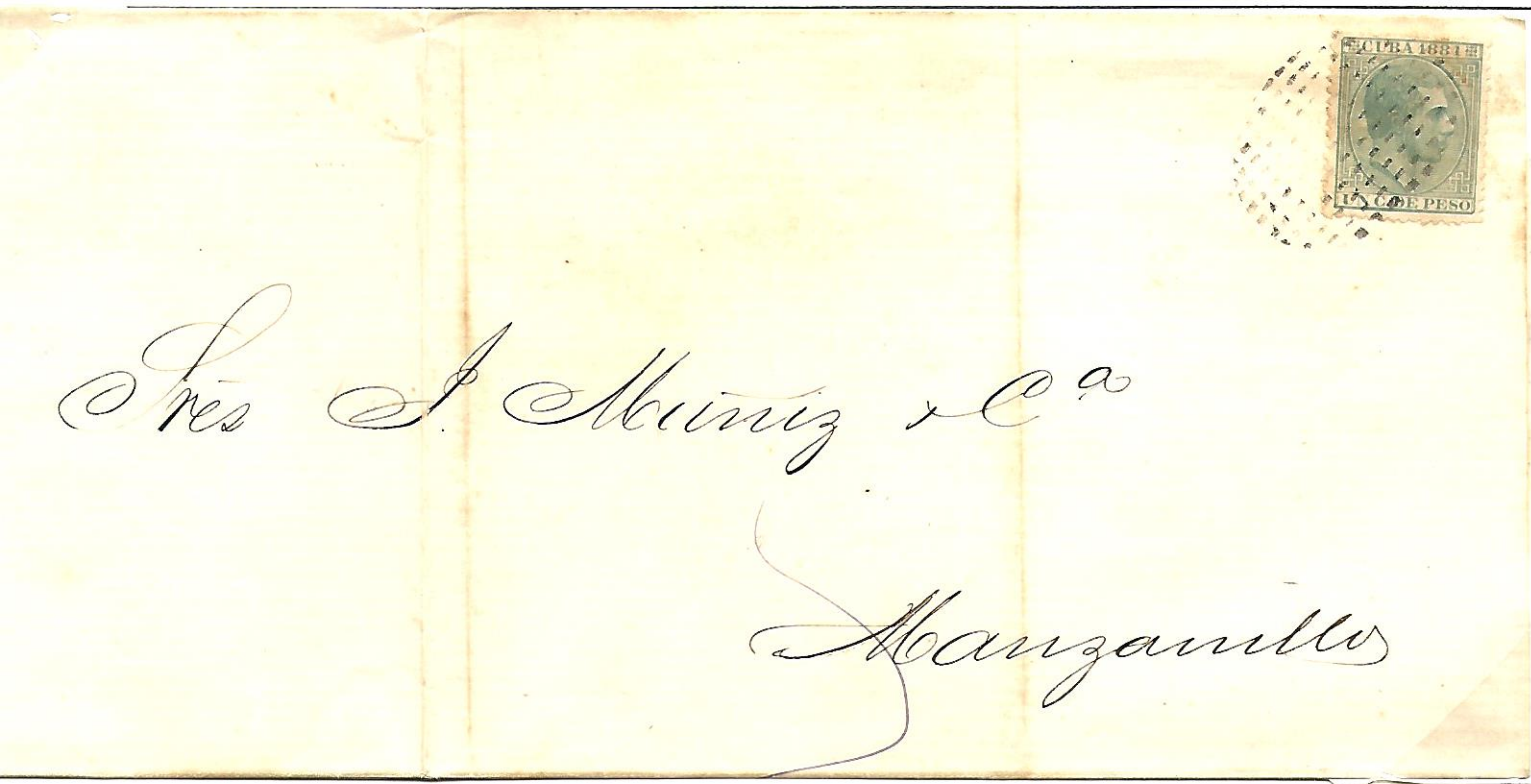 CUBA 1881
UN C. DE PESO
Sres J. Muñiz y Cª
Manzanillo